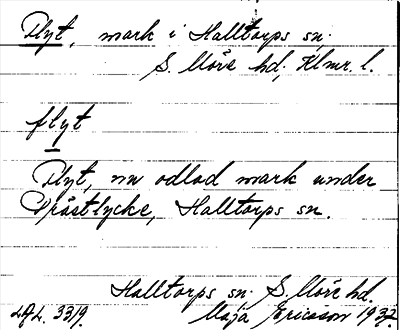 Flyt, mark i Halltorps sn.
S. Möre hd, Klmr. l.
flyt
Flyt, nu odlad mark under
Pråstlycke, Halltorps sn.
Halltorps sn. S. Möre hd.
Maja Ericson 1932.